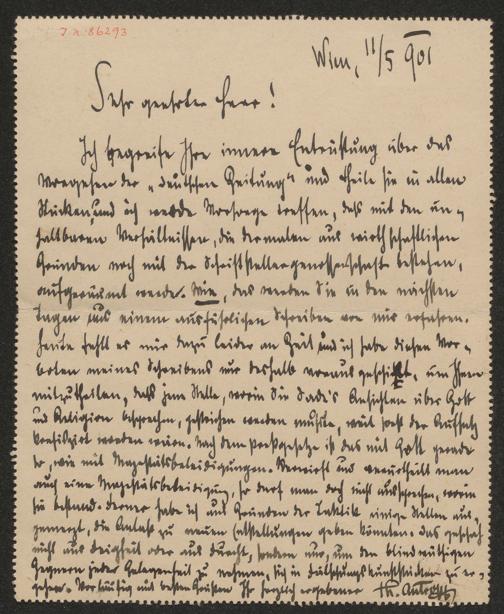 J. N. 86293
Wien, 11/5 901
Sehr geehrter Herr!
Ich begreife Ihre innere Entrüstung über das
Vorgehen der „Deutschen Zeitung“ und theile sie in allen
Stücken, und ich werde Vorsorge treffen, daß mit den un-
haltbaren Verhältnissen, die dermalen aus wirthschaftlichen
Gründen noch mit der Schriftstellergenossenschaft bestehen,
aufgeräumt werde. Wie, das werden Sie in den nächsten
Tagen aus einem ausführlichen Schreiben von mir erfahren.
Heute fehlt es mir dazu leider an Zeit und ich habe diesen Vor-
boten meines Schreibens nur deshalb vorausgeschickt, um Ihnen
mitzutheilen, daß jene Stelle, worin Sie Sade's Ansichten über Gott
und Religion besprechen, gestrichen werden mußte, weil sonst der Aufsatz
konfisziert worden wäre. Nach dem Preßgesetze ist das mit Gott gerade
so, wie mit Majestätsbeleidigungen. Verwirft und verurtheilt man
auch eine Majestätsbeleidigung, so darf man doch nicht aussprechen, worin
sie bestand. Ferner habe ich aus Gründen der Taktik einige Stellen aus-
gemerzt, die Anlaß zu neuen Entstellungen geben könnten. Das geschah
nicht aus Feigheit oder aus Furcht, sondern nur, um den blindwüthigen
Gegnern jeder Gelegenheit zu nehmen, sich in Fälschungskunststücken zu er-
gehen. Vorläufig mit besten Grüßen Ihr herzlich ergebener Th. Antropp